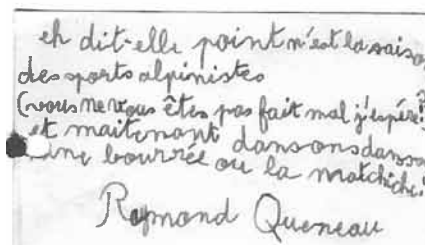 eh dit-elle point n'est la saiso
des sports alpinistes
(vous ne vous êtes pas fait mal j'espère?)
et maitenant dansons danso
une bourrée ou la matchiche!
Raymond Queneau